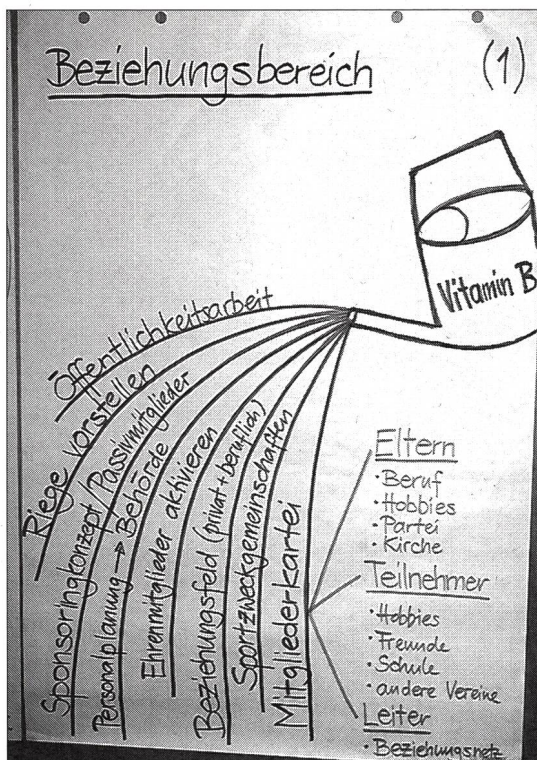 Beziehungsbereich (1)
Vitamin B
Öffentlichkeitsarbeit
Riege vorstellen
Sponsoringkonzept / Passivmitglieder
Personalplanung → Behörde
Ehrenmitglieder aktivieren
Beziehungsfeld (privat + beruflich)
Sportzweckgemeinschaften
Mitgliederkartei
Eltern
· Beruf
· Hobbies
· Partei
· Kirche
Teilnehmer
· Hobbies
· Freunde
· Schule
· andere Vereine
Leiter
· Beziehungsnetz